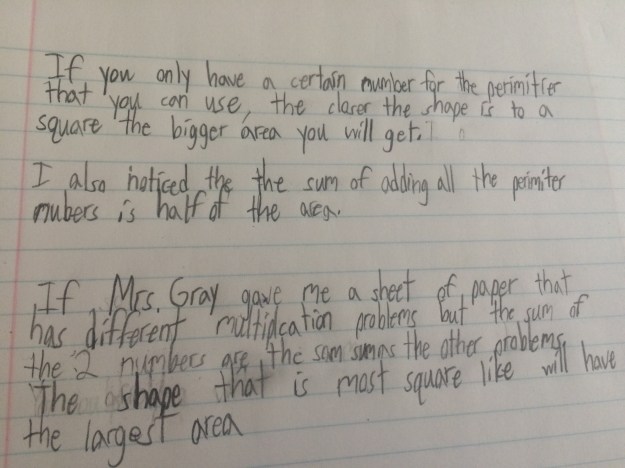 If you only have a certain number for the perimitrer
that you can use, the closer the shape is to a
square the bigger area you will get.
I also noticed the the sum of adding all the perimiter
nubers is half of the area.
If Mrs. Gray gave me a sheet of paper that
has different multidcation problems but the sum of
the 2 numbers are the sam sumns the other problems,
The shape that is most square like will have
the largest area